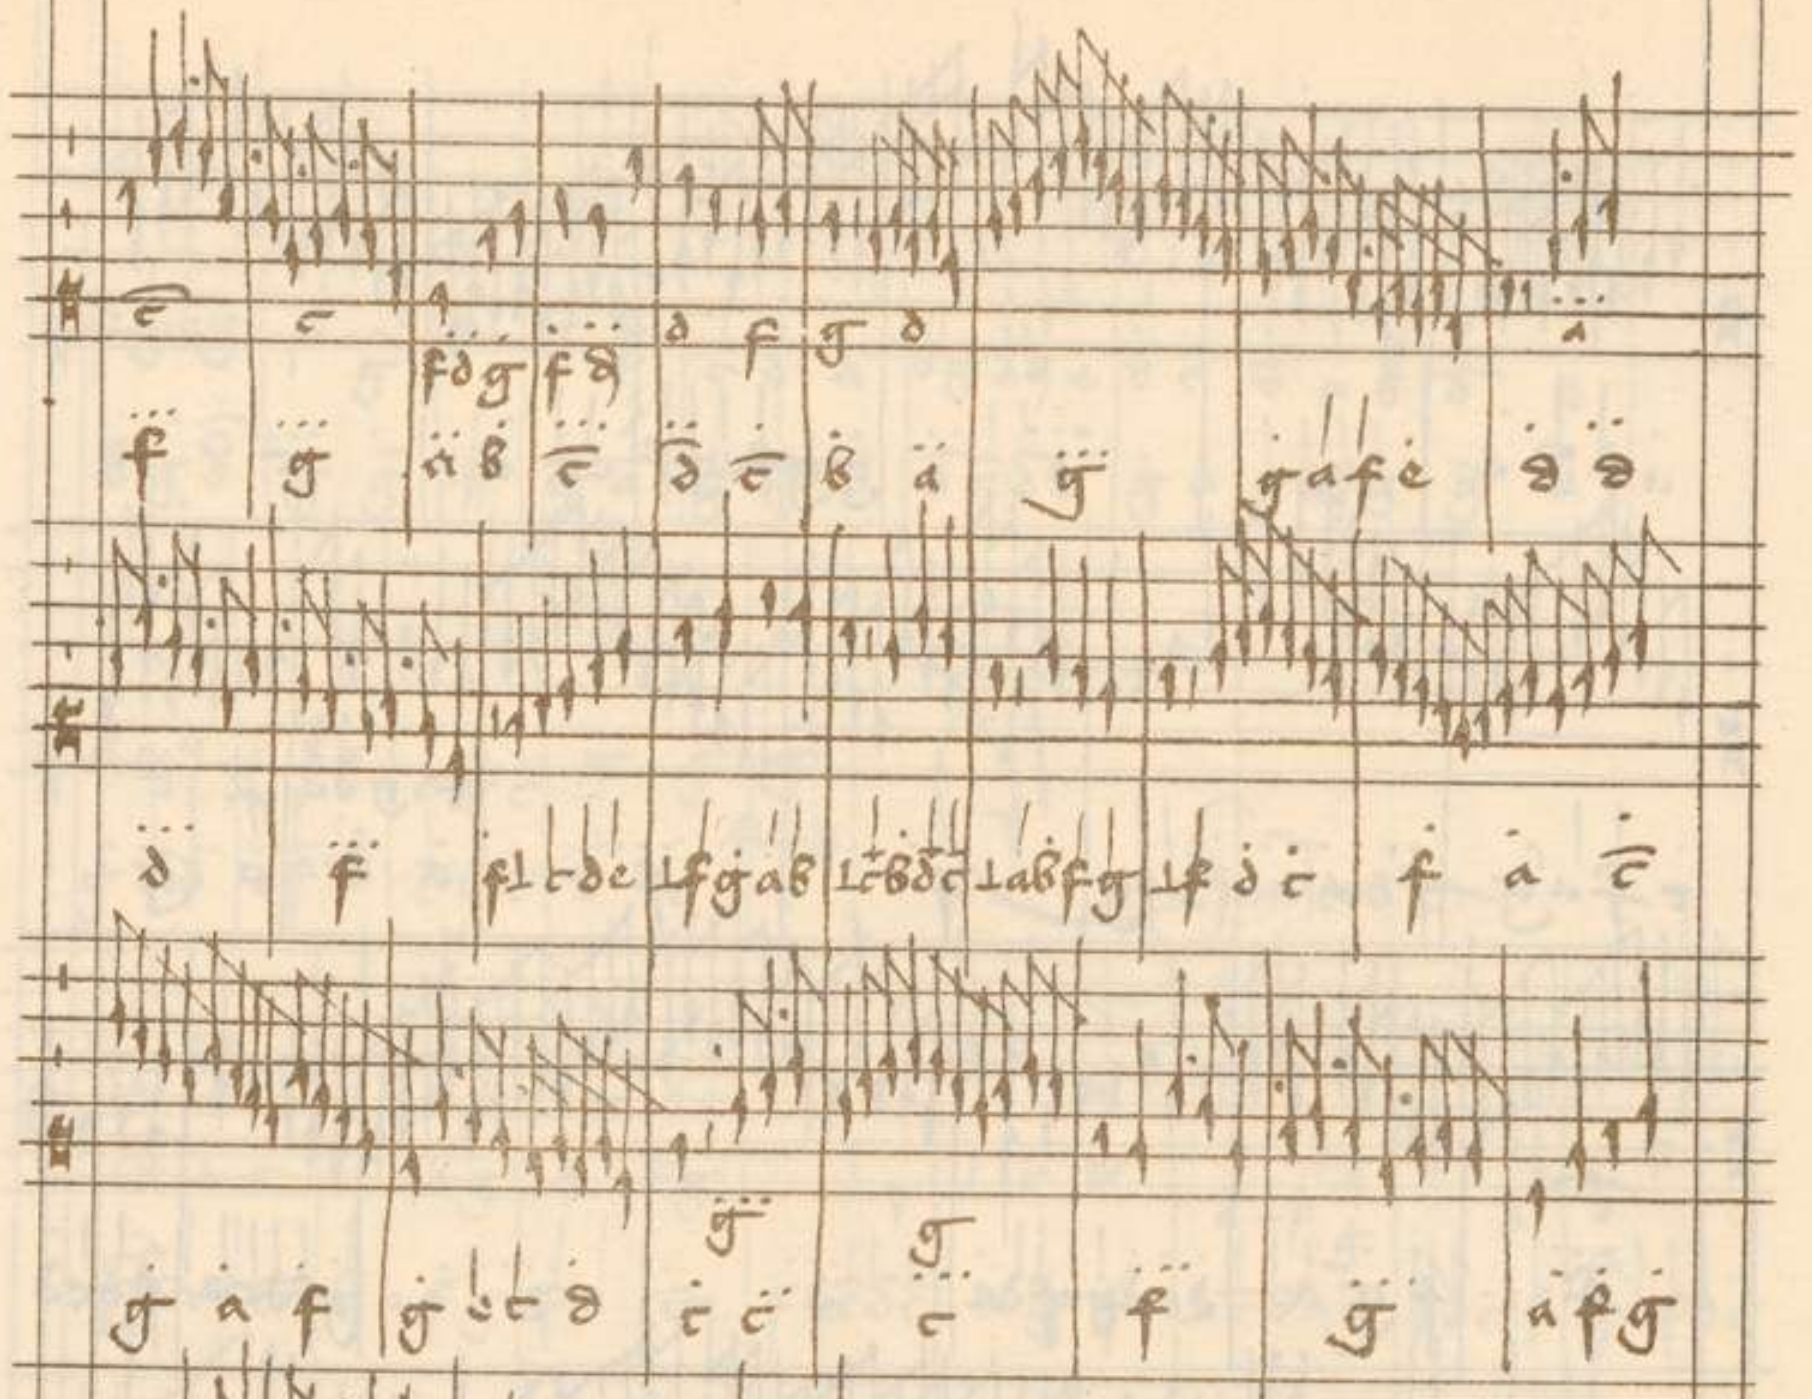 c̅ c d f g d a
f d g f d
f g a b c̅ d̅ c̅ b a g g a f e d d
d f f⊥cde ⊥fgab ⊥c̅bd̅c̅ ⊥abfg ⊥f d c f a c̅
g g
g a f g e c d c c c f g a f g